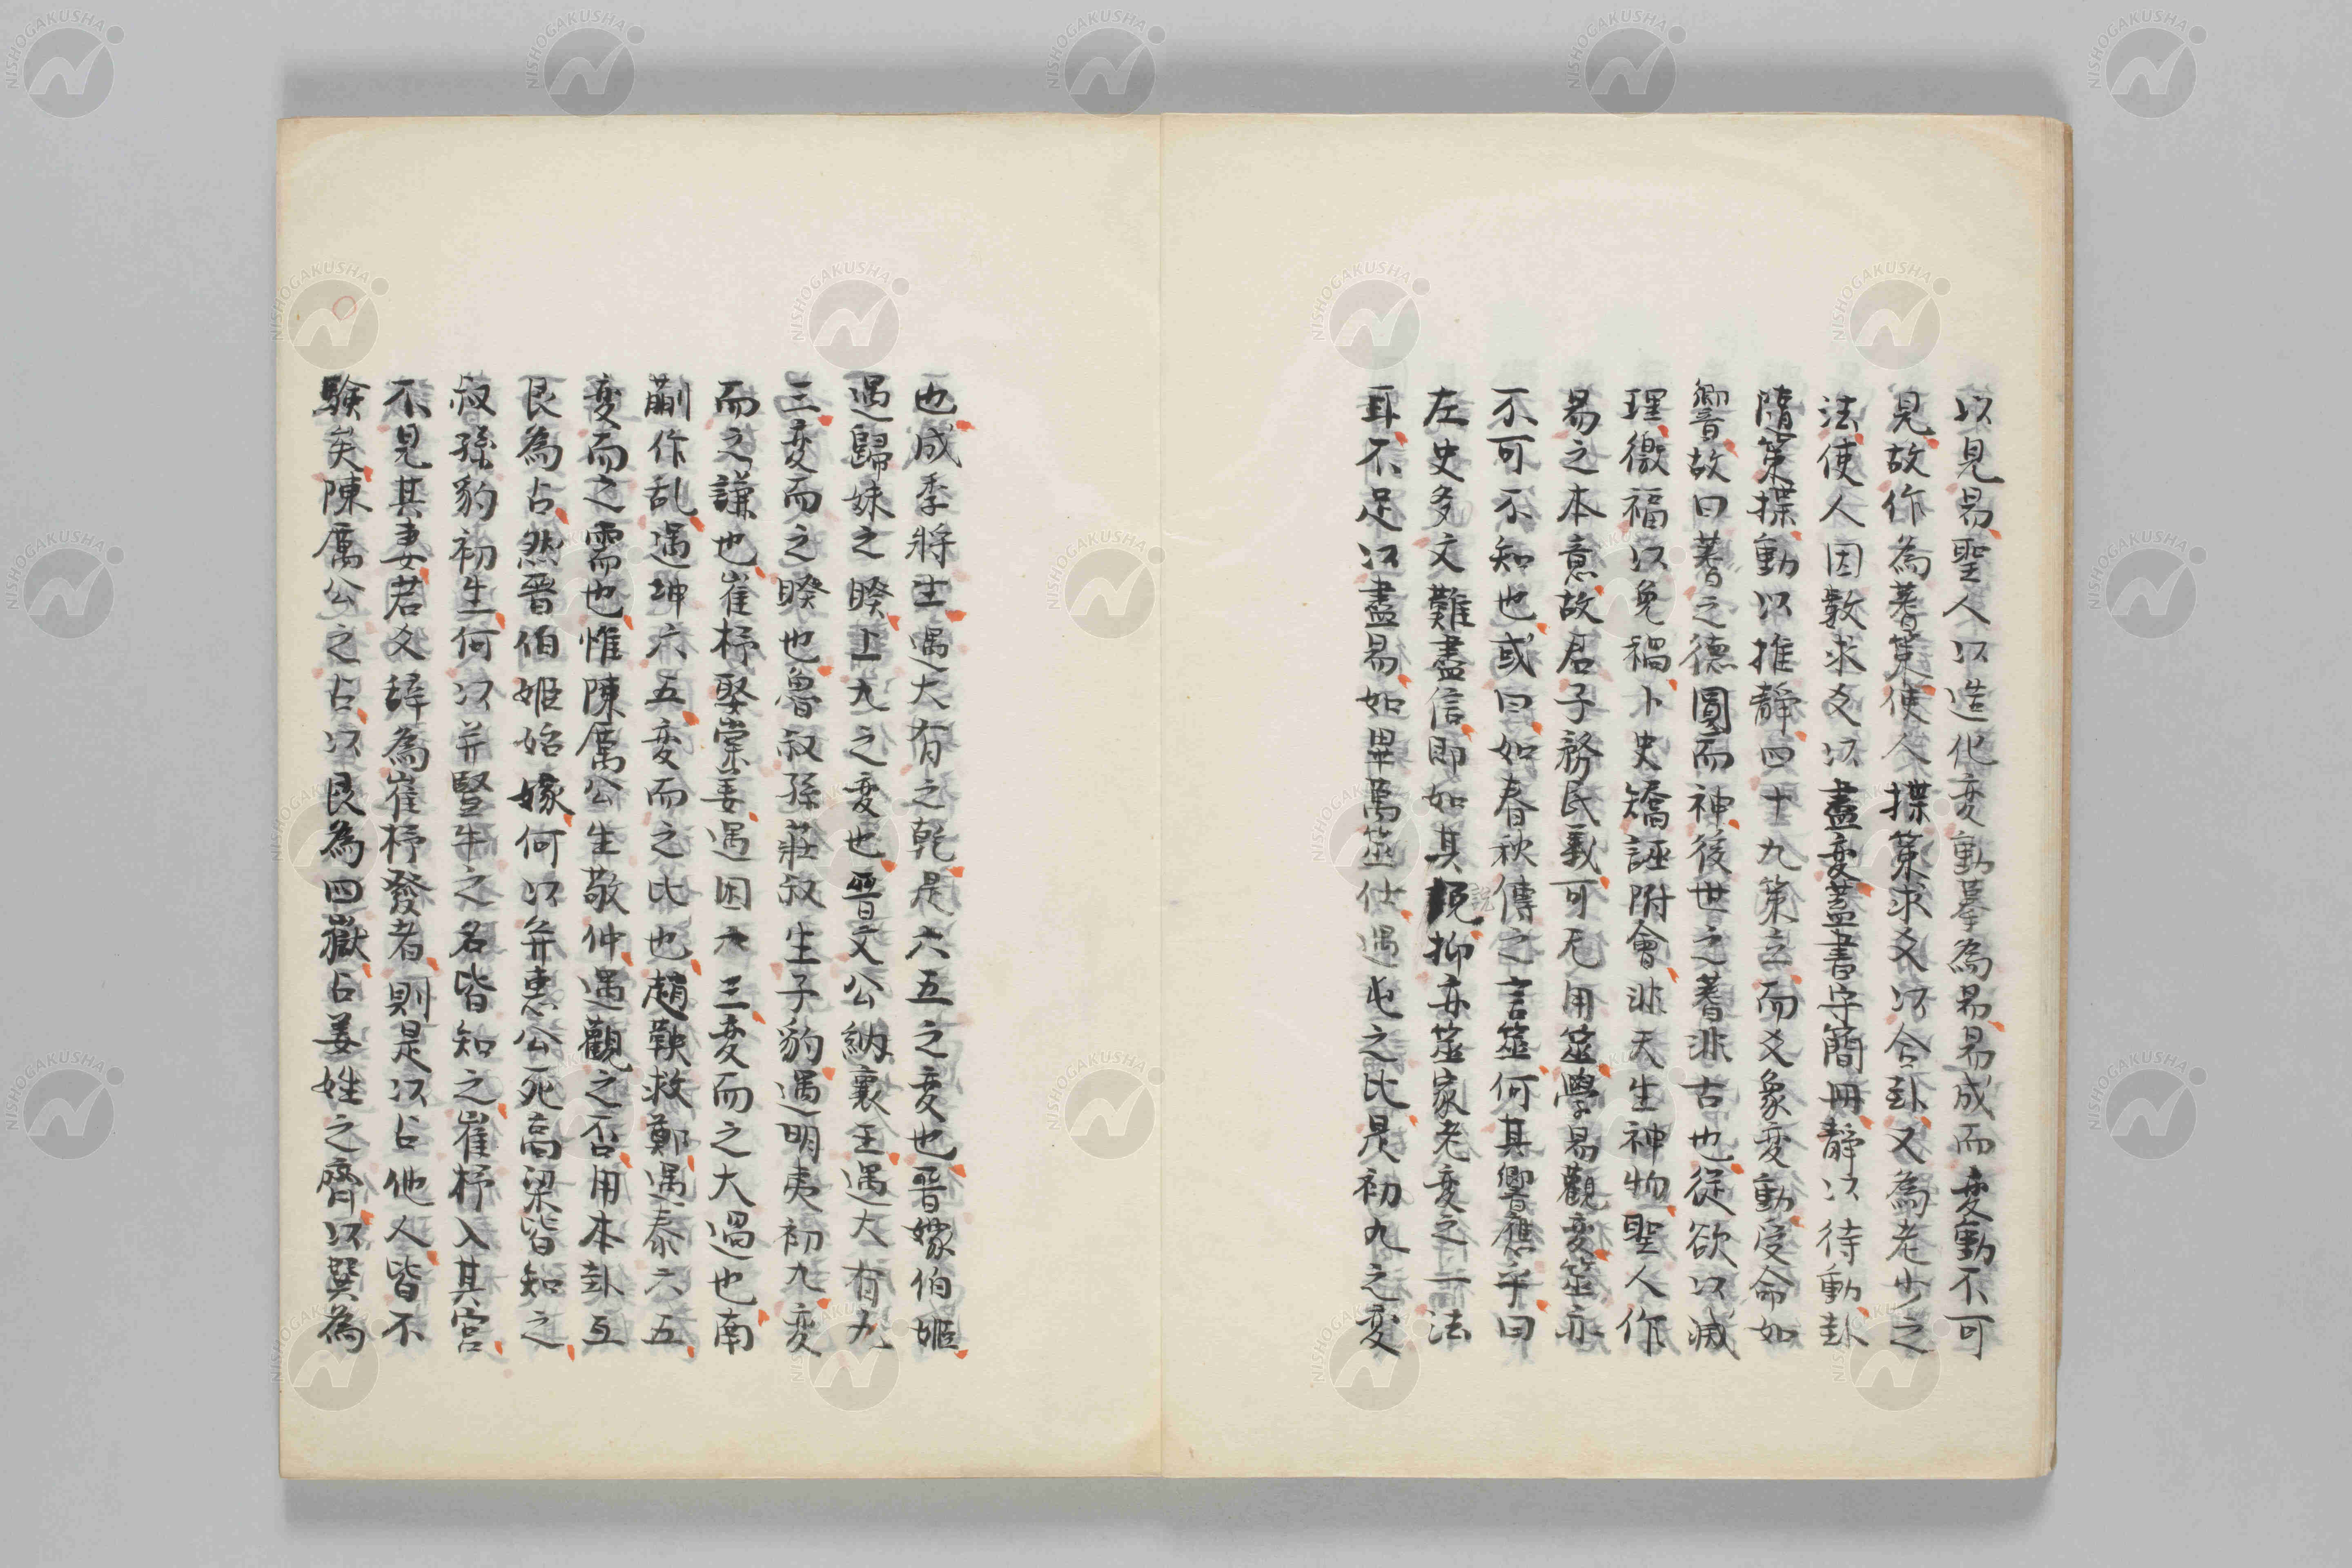 以見易聖人以造化変動摹為易易成而変動不可
見故作為蓍策使人揲策求爻以合卦又為老少之
法使人因數求爻以盡変蓋書字簡冊靜以待動卦
隨策揲動以推靜四十九策立而爻象変動受命如
響故曰蓍之德圓而神後世之蓍非古也從欲以滅
理徼福以免禍卜史矯誣附會非天生神物聖人作
易之本意故君子務民義可无用筮學易觀変筮亦
不可不知也或曰如春秋傳之言筮何其響應乎曰
左史多文難盡信即如其説抑亦筮家老変之一法
耳不足以盡易如畢萬筮仕遇屯之比是初九之変
也成季將生遇大有之乾是六五之変也晉嫁伯姬
遇歸妹之睽上九之変也晉文公納襄王遇大有九
三変而之睽也魯叔孫莊叔生子豹遇明夷初九変
而之謙也崔杼娶棠姜遇困六三変而之大過也南
蒯作乱遇坤六五変而之比也趙鞅救鄭遇泰六五
変而之需也惟陳厲公生敬仲遇觀之否用本卦互
艮為占然晉伯姬始嫁何以弁惠公死高梁皆知之
叔孫豹初生何以并豎牛之名皆知之崔杼入其宮
不見其妻若爻辞為崔杼發者則是以占他人皆不
験矣陳厲公之占以艮為四嶽占姜姓之齊以巽為
説
NISHOGAKUSHA